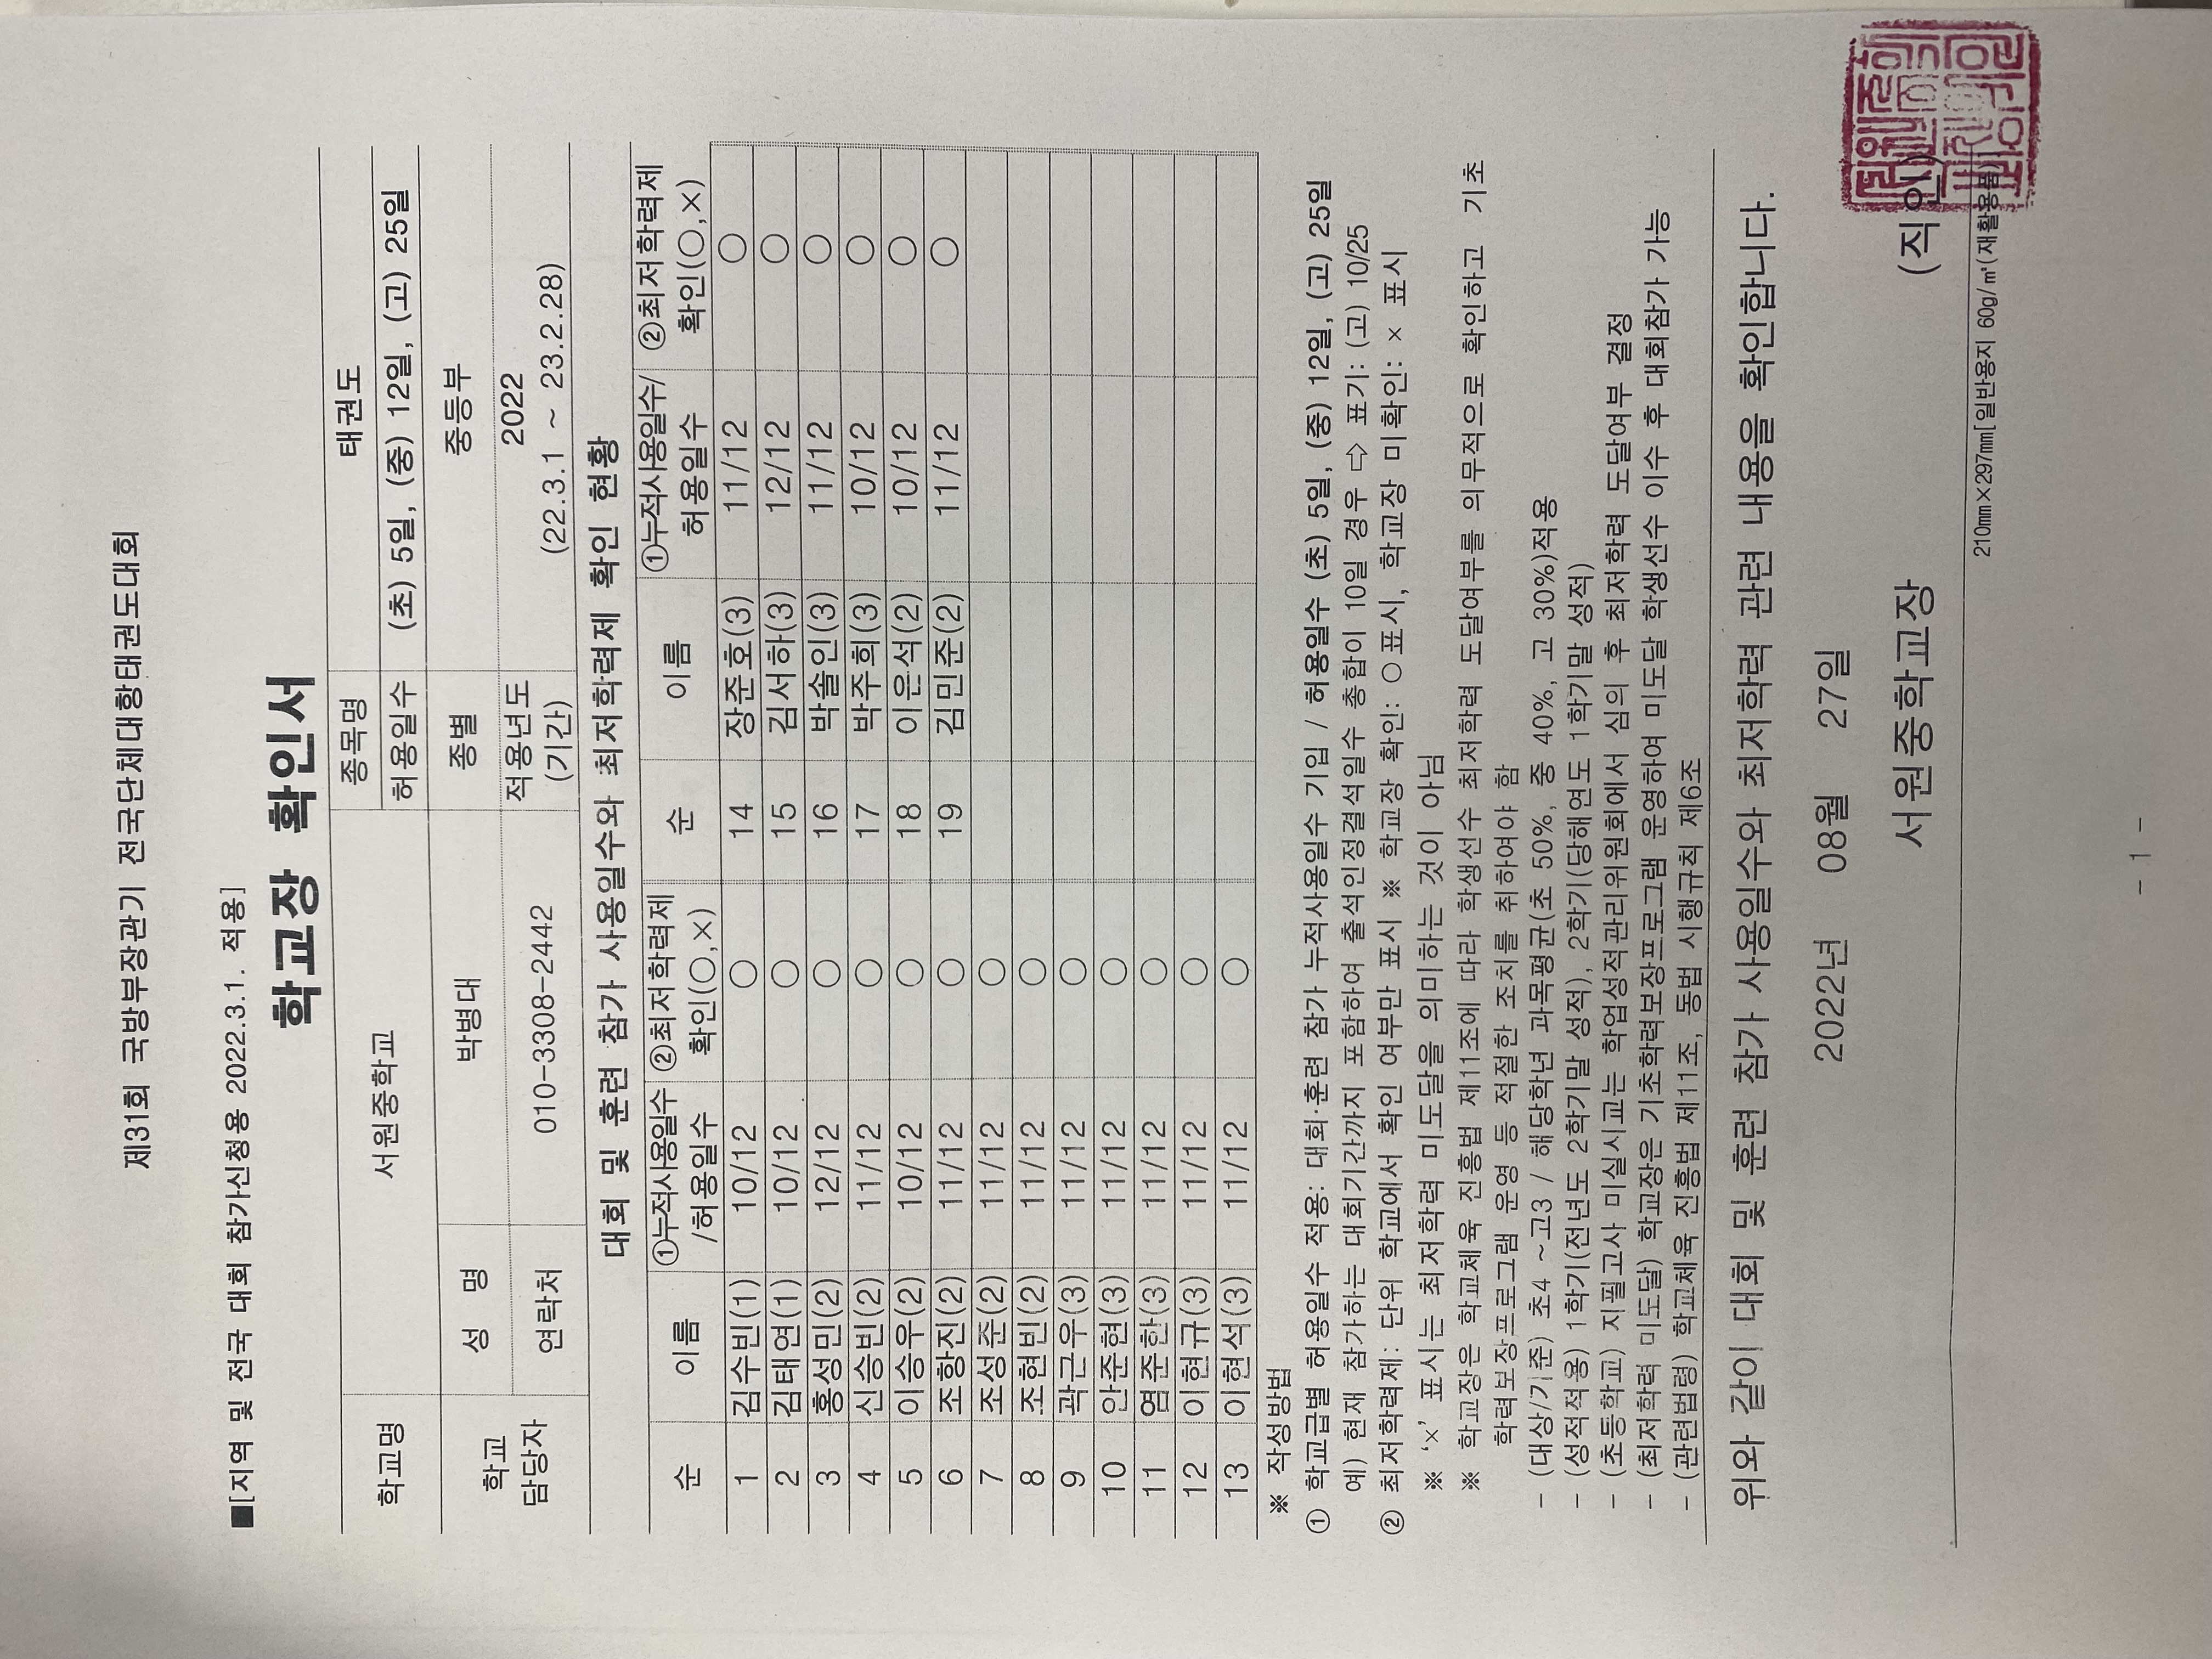 제31회 국방부장관기 전국단체대항태권도대회
■[지역 및 전국 대회 참가신청용 2022.3.1. 적용]
학교장 확인서
학교명 서원중학교 종목명 태권도
허용일수 (초) 5일, (중) 12일, (고) 25일
학교 담당자 성 명 박병대 종별 중등부
연락처 010-3308-2442 적용년도 (기간) 2022 (22.3.1 ~ 23.2.28)
대회 및 훈련 참가 사용일수와 최저학력제 확인 현황
순 이름 ①누적사용일수/허용일수 ②최저학력제 확인(○,×) 순 이름 ①누적사용일수/허용일수 ②최저학력제 확인(○,×)
1 김수빈(1) 10/12 ○ 14 장준호(3) 11/12 ○
2 김태연(1) 10/12 ○ 15 김서하(3) 12/12 ○
3 홍성민(2) 12/12 ○ 16 박솔인(3) 11/12 ○
4 신승빈(2) 11/12 ○ 17 박주희(3) 10/12 ○
5 이승우(2) 10/12 ○ 18 이은석(2) 10/12 ○
6 조항진(2) 11/12 ○ 19 김민준(2) 11/12 ○
7 조성준(2) 11/12 ○
8 조현빈(2) 11/12 ○
9 곽근우(3) 11/12 ○
10 안준현(3) 11/12 ○
11 염준한(3) 11/12 ○
12 이현규(3) 11/12 ○
13 이현석(3) 11/12 ○
※ 작성방법
① 학교급별 허용일수 적용: 대회·훈련 참가 누적사용일수 기입 / 허용일수 (초) 5일, (중) 12일, (고) 25일
예) 현재 참가하는 대회기간까지 포함하여 출석인정결석일수 총합이 10일 경우 ⇨ 표기: (고) 10/25
② 최저학력제: 단위 학교에서 확인 여부만 표시 ※ 학교장 확인: ○ 표시, 학교장 미확인: × 표시
※ '×' 표시는 최저학력 미도달을 의미하는 것이 아님
※ 학교장은 학교체육 진흥법 제11조에 따라 학생선수 최저학력 도달여부를 의무적으로 확인하고 기초
학력보장프로그램 운영 등 적절한 조치를 취하여야 함
- (대상/기준) 초4 ~고3 / 해당학년 과목평균(초 50%, 중 40%, 고 30%)적용
- (성적적용) 1학기(전년도 2학기말 성적), 2학기(당해연도 1학기말 성적)
- (초등학교) 지필고사 미실시교는 학업성적관리위원회에서 심의 후 최저학력 도달여부 결정
- (최저학력 미도달) 학교장은 기초학력보장프로그램 운영하여 미도달 학생선수 이수 후 대회참가 가능
- (관련법령) 학교체육 진흥법 제11조, 동법 시행규칙 제6조
위와 같이 대회 및 훈련 참가 사용일수와 최저학력 관련 내용을 확인합니다.
2022년 08월 27일
서원중학교장 (직인)
210mm×297mm[일반용지 60g/㎡(재활용품)]
- 1 -